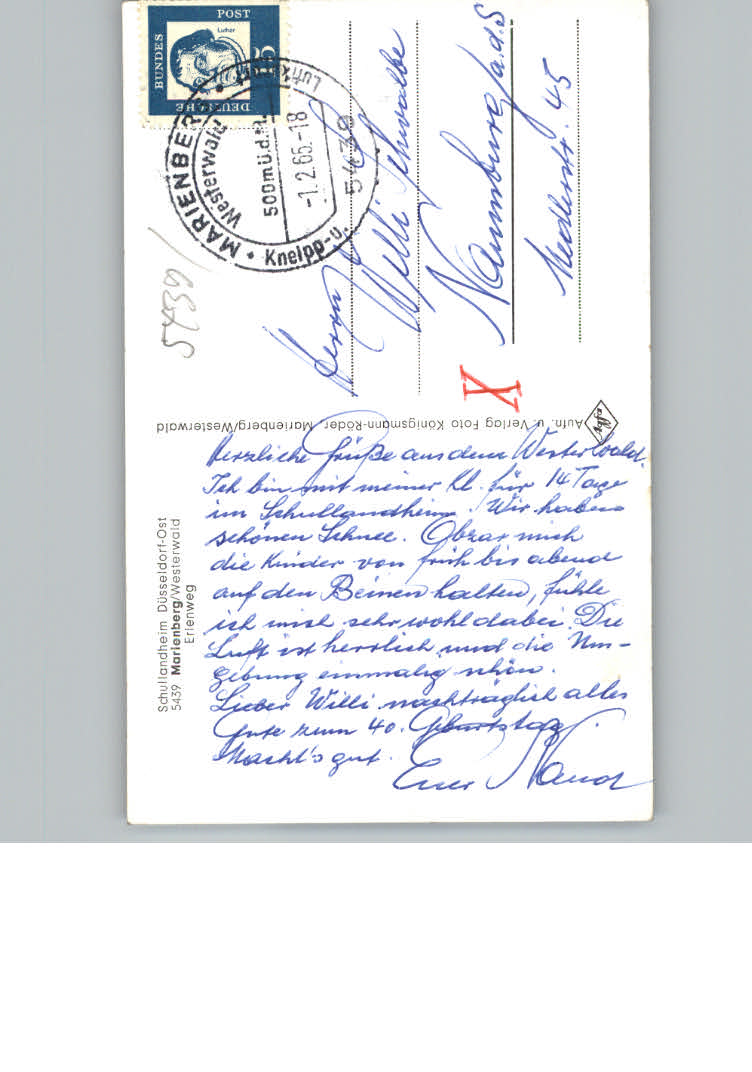 Schullandheim Düsseldorf-Ost
5439 Marienberg/Westerwald
Erlenweg
Herzliche Grüße aus dem Westerwald.
Ich bin mit meiner Kl. für 14 Tage
im Schullandheim. Wir haben
schönen Schnee. Obzar mich
die Kinder von früh bis abend
auf den Beinen halten, fühle
ich mich sehr wohl dabei. Die
Luft ist herrlich und die Um-
gebung einmalig schön.
Lieber Willi nachträglich alles
Gute zum 40. Geburtstag.
Macht's gut.
Euer
Aufn. u. Verlag Foto Königsmann-Röder, Marienberg/Westerwald
efbe
DEUTSCHE
BUNDES
POST
Luther
MARIENBERG
Westerwald
500 m ü.d.M.
-1.2.65.-18
5439
Kneipp-u.
5439
Herrn
Willi Schwalbe
Naumburg/a.d.S
Medlerstr. 45
X